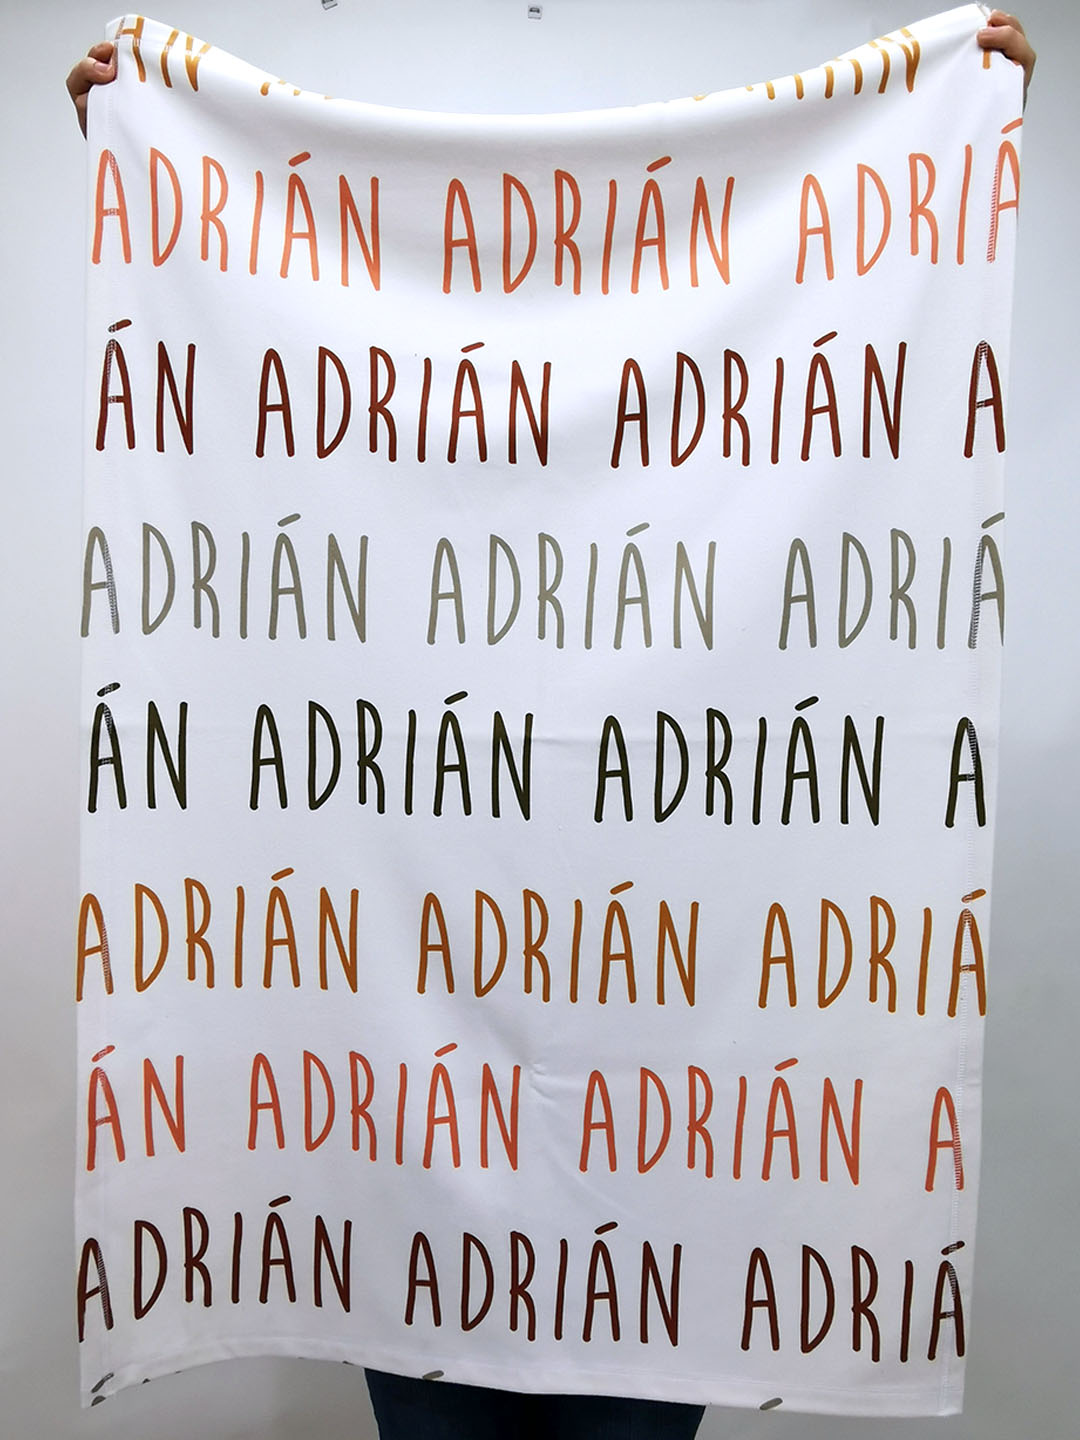 ADRIÁN ADRIÁN ADRIÁ
ÁN ADRIÁN ADRIÁN A
ADRIÁN ADRIÁN ADRIÁ
ÁN ADRIÁN ADRIÁN A
ADRIÁN ADRIÁN ADRIÁ
ÁN ADRIÁN ADRIÁN A
ADRIÁN ADRIÁN ADRIÁ